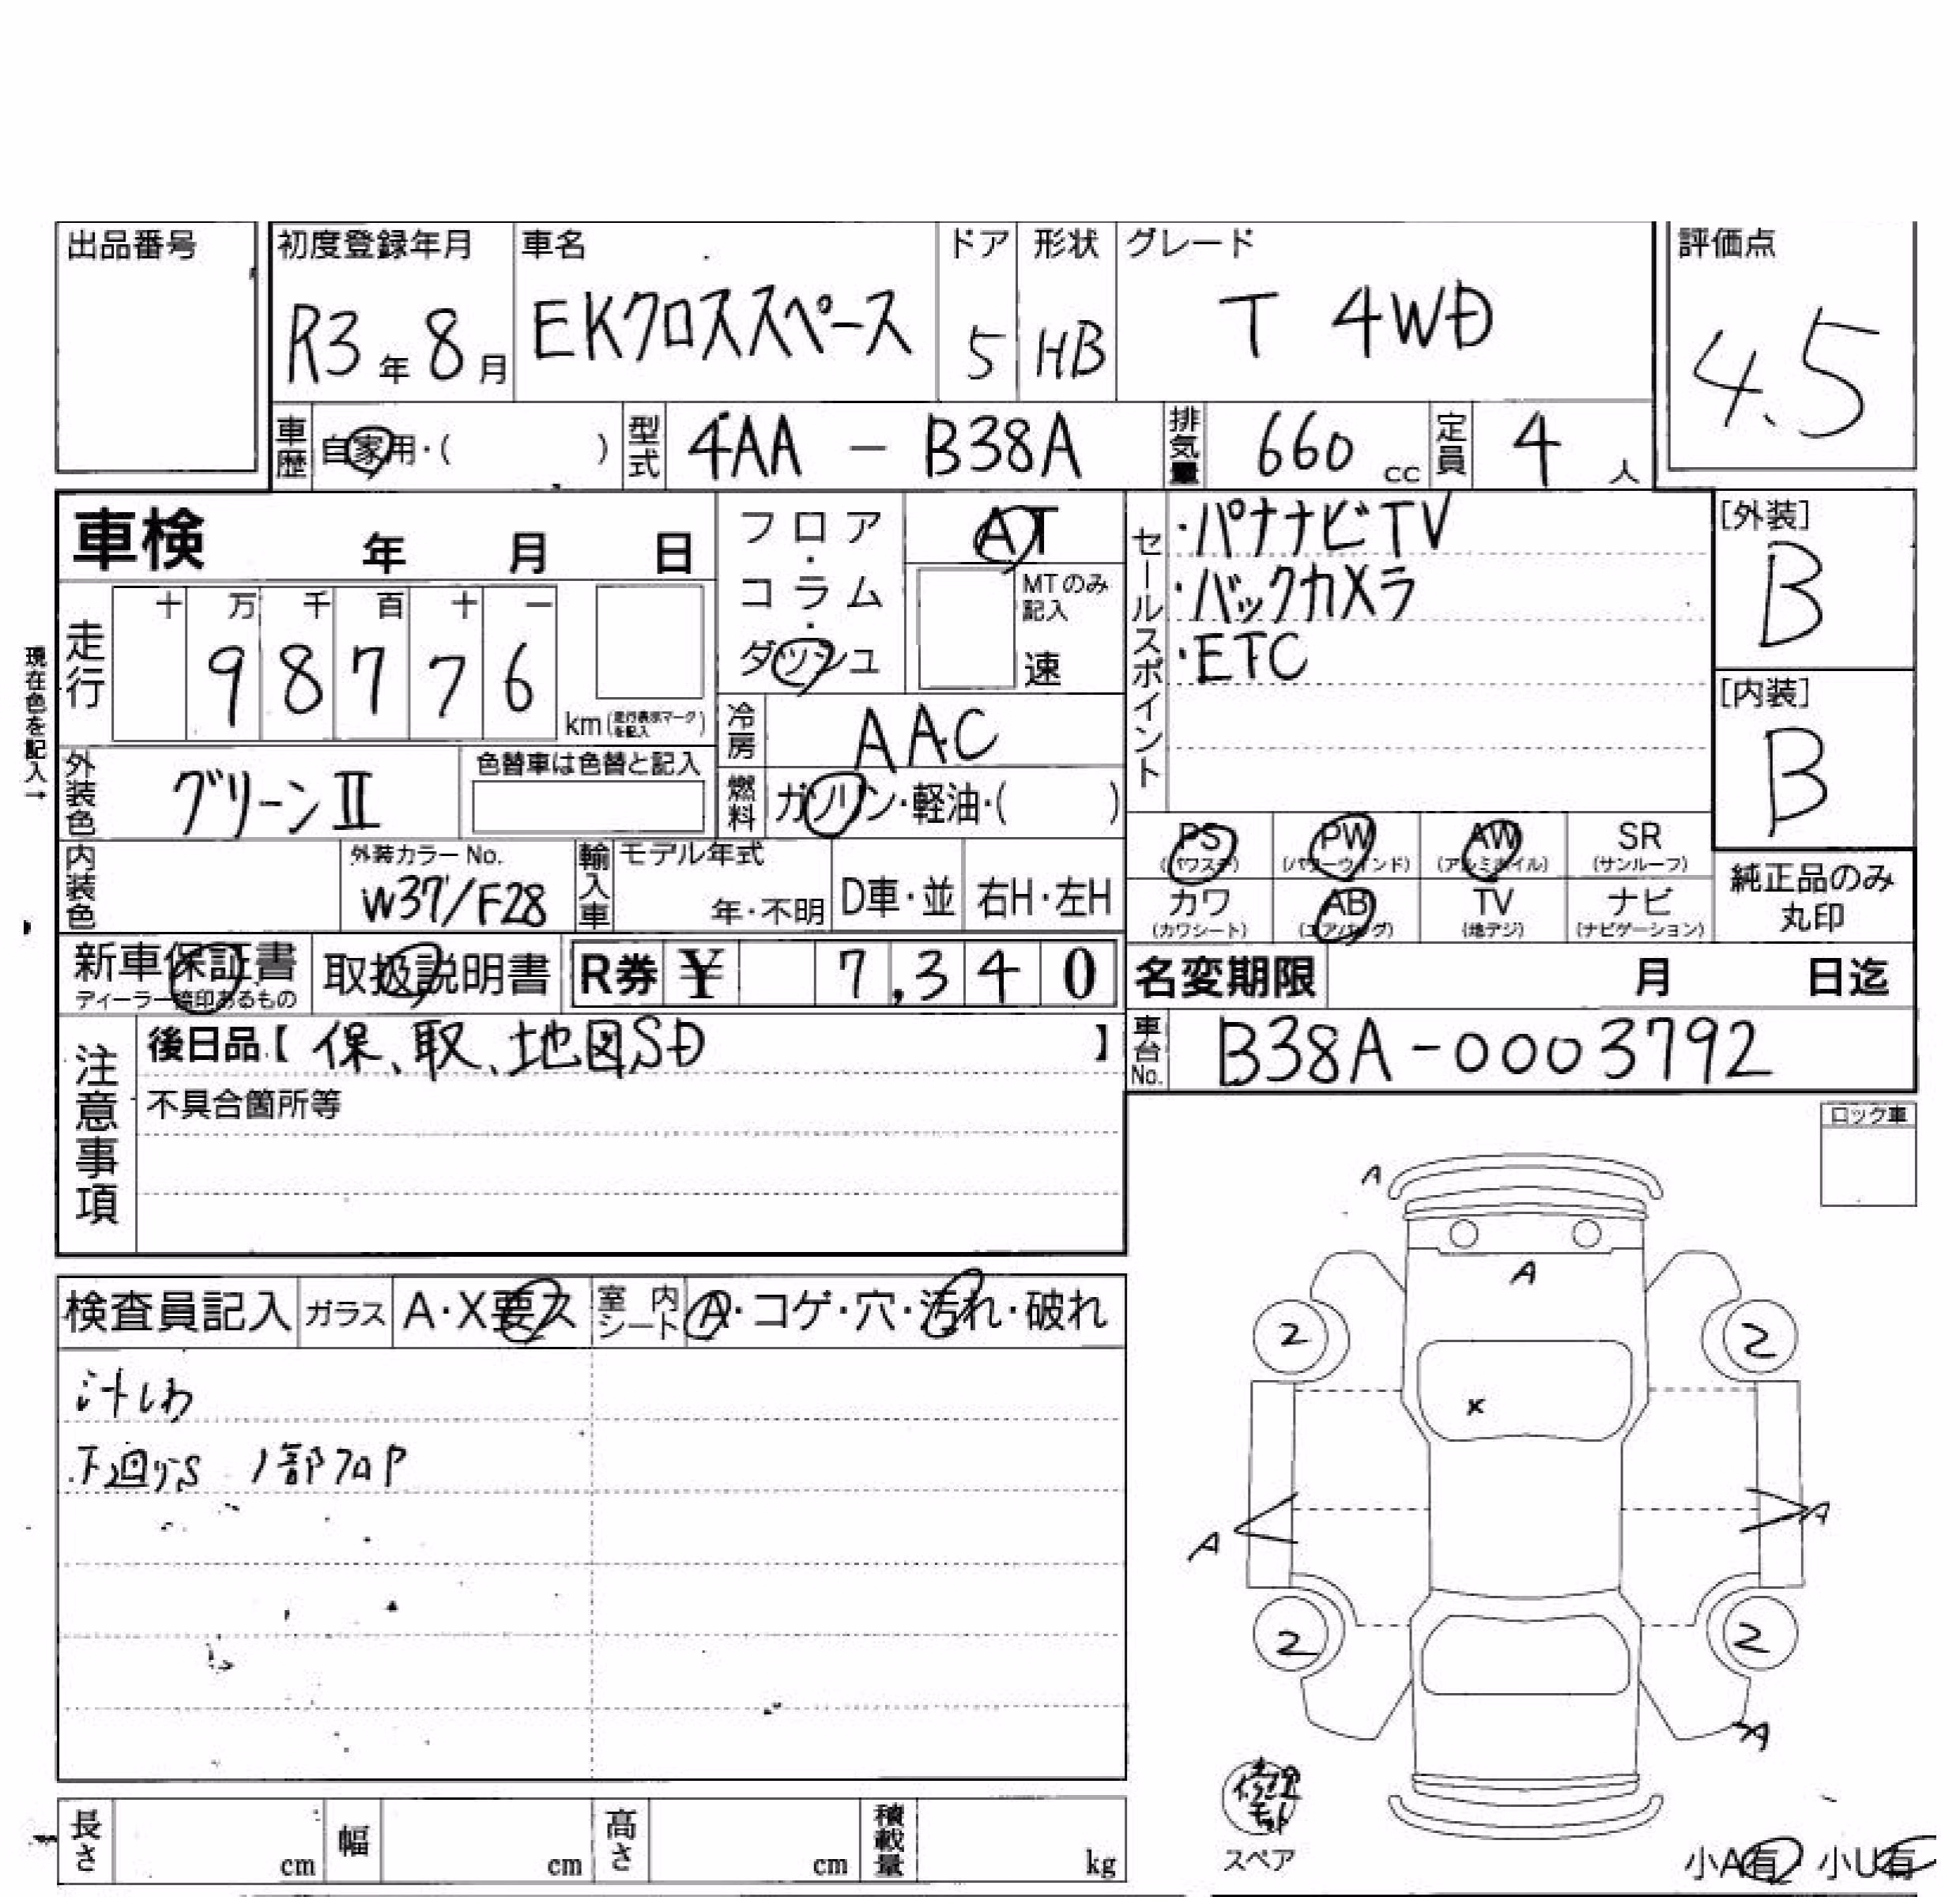 出品番号
初度登録年月
R3年 8月
車名
EKクロススペース
ドア
5
形状
HB
グレード
T 4WD
評価点
4.5
車歴
自家用・( )
型式
4AA - B38A
排気量
660 cc
定員
4 人
車検 年 月 日
フロア・コラム・ダッシュ
AT
MTのみ記入
速
セールスポイント
・パナナビTV
・バックカメラ
・ETC
[外装]
B
[内装]
B
現在色を記入→
走行
十 万 千 百 十 一
9 8 7 7 6
km(走行表示マークを記入)
冷房
AAC
外装色
グリーンII
色替車は色替と記入
燃料
ガソリン・軽油・( )
内装色
外装カラーNo.
W37/F28
輸入車
モデル年式
年・不明
D車・並
右H・左H
PS (パワステ)
PW (パワーウインド)
AW (アルミホイル)
SR (サンルーフ)
カワ (カワシート)
AB (エアバッグ)
TV (地デジ)
ナビ (ナビゲーション)
純正品のみ丸印
新車保証書
ディーラー捺印あるもの
取扱説明書
R券 ¥ 7,340
名変期限 月 日迄
注意事項
後日品【 保、取、地図SD 】
不具合箇所等
車台No.
B38A-0003792
ロック車
検査員記入
ガラス
A・X要ス
室内シート
A・コゲ・穴・汚れ・破れ
汁しわ
下廻りS 1部フロP
A
A
2
2
X
A
A
2
2
A
スペア
小A有 小U有
長さ cm
幅 cm
高さ cm
積載量 kg